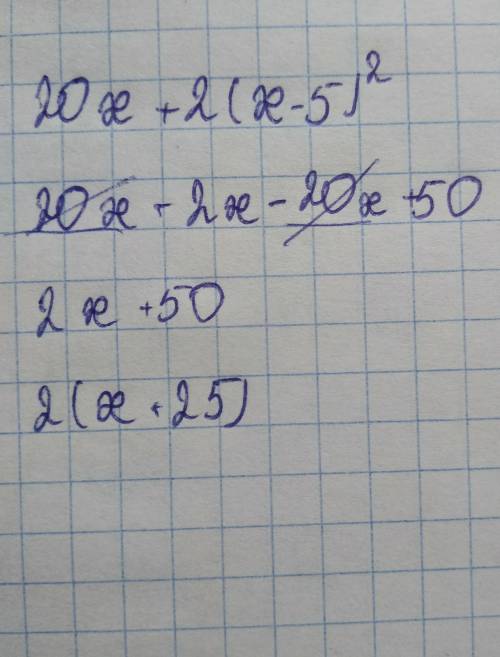 20x + 2(x - 5)²
20x + 2x - 20x + 50
2x + 50
2(x + 25)